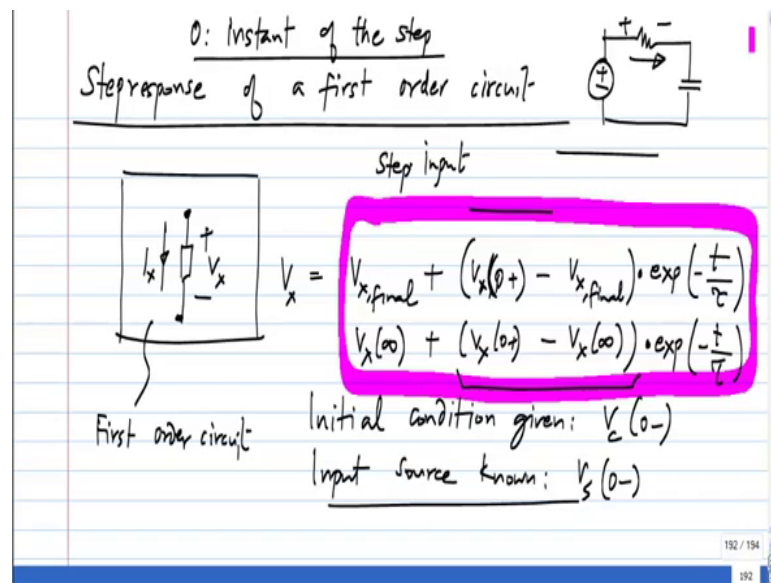 0: Instant of the step
Step response of a first order circuit
Step input
+ -
+
-
I_x
+
V_x
-
V_x = V_x,final + (V_x(0+) - V_x,final) · exp(-t/τ)
V_x(∞) + (V_x(0+) - V_x(∞)) · exp(-t/τ)
First order circuit
Initial condition given: V_c(0-)
Input source known: V_s(0-)
192 / 194
192